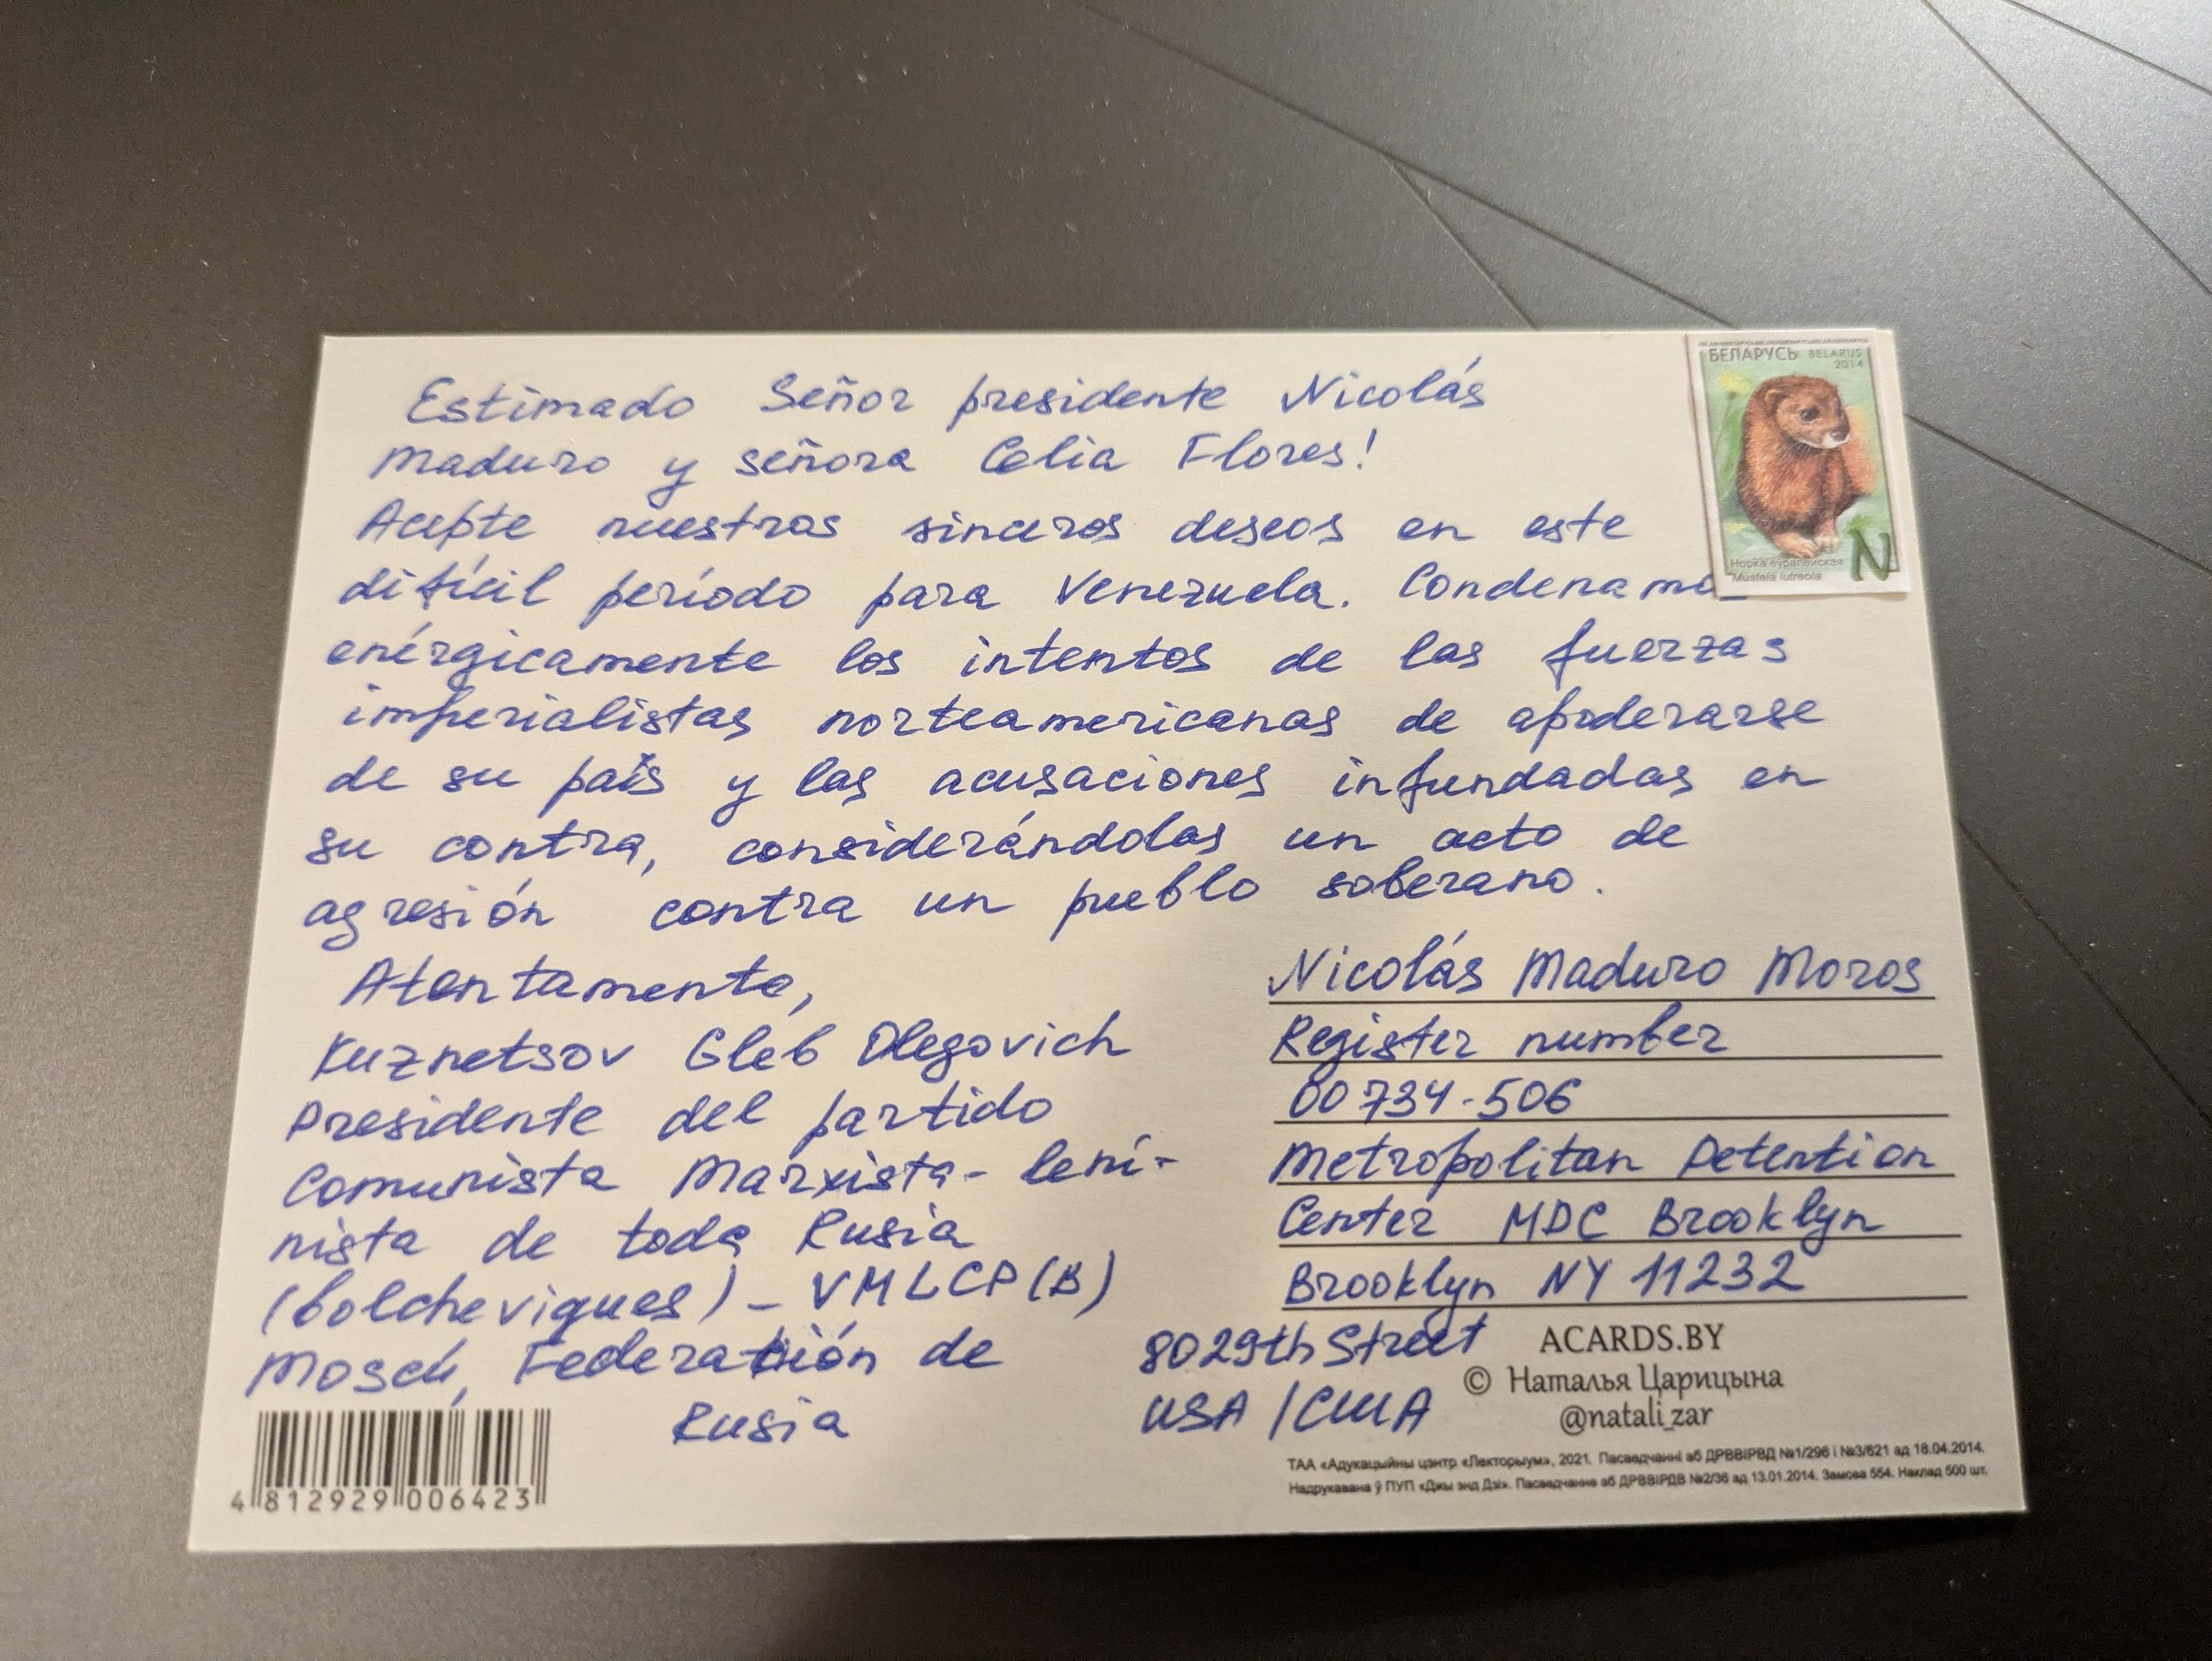 Estimado Señor presidente Nicolás
Maduro y señora Celia Flores!
Acepte nuestros sinceros deseos en este
difícil período para Venezuela. Condenamo
enérgicamente los intentos de las fuerzas
imperialistas norteamericanas de apoderarse
de su país y las acusaciones infundadas en
su contra, considerándolas un acto de
agresión contra un pueblo soberano.
Atentamente,
Kuznetsov Gleb Olegovich
Presidente del partido
Comunista Marxista-leni-
nista de toda Rusia
(bolcheviques) - VMLCP(B)
Moscú, Federación de
Rusia
БЕЛАРУСЬ BELARUS
2014
Норка еўрапейская
Mustela lutreola
N
Nicolás Maduro Moros
Register number
00734-506
Metropolitan Detention
Center MDC Brooklyn
Brooklyn NY 11232
8029th Street
USA / США
ACARDS.BY
© Наталья Царицына
@natali_zar
ТАА «Адукацыйны цэнтр «Лекторыум», 2021. Пасведчанні аб ДРВВІРВД №1/296 і №3/621 ад 18.04.2014.
Надрукавана ў ПУП «Джы энд Дзі». Пасведчанне аб ДРВВІРДВ №2/36 ад 13.01.2014. Замова 554. Наклад 500 шт.
4 812929 006423